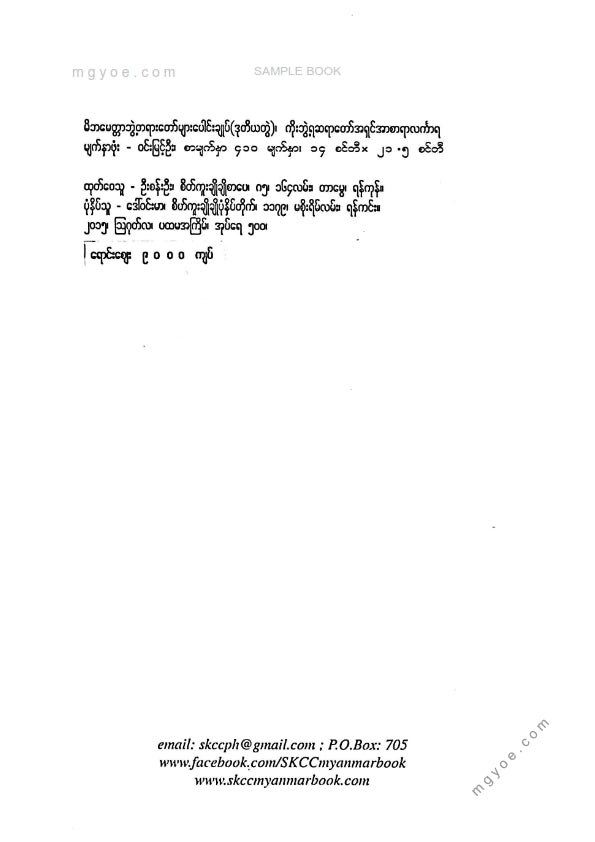 mgyoe.com
SAMPLE BOOK
မိဘမေတ္တာဘွဲ့တရားတော်များပေါင်းချုပ်(ဒုတိယတွဲ)၊ ကိုးဘွဲ့ရဆရာတော်အရှင်အာစာရာလင်္ကာရ
မျက်နှာဖုံး - ဝင်းမြင့်ဦး၊ စာမျက်နှာ ၄၁၀ မျက်နှာ၊ ၁၄ စင်တီ× ၂၁.၅ စင်တီ
ထုတ်ဝေသူ - ဦးစန်းဦး၊ စိတ်ကူးချိုချိုစာပေ၊ ၈၅၊ ၁၆၄လမ်း၊ တာမွေ၊ ရန်ကုန်။
ပုံနှိပ်သူ - ဒေါ်ဝင်းမာ၊ စိတ်ကူးချိုချိုပုံနှိပ်တိုက်၊ ၁၁၇၉၊ မစိုးရိမ်လမ်း၊ ရန်ကင်း။
၂၀၁၅၊ ဩဂုတ်လ၊ ပထမအကြိမ်၊ အုပ်ရေ ၅၀၀၊
ရောင်းဈေး ၉၀၀၀ ကျပ်
email: skccph@gmail.com ; P.O.Box: 705
www.facebook.com/SKCCmyanmarbook
www.skccmyanmarbook.com
mgyoe.com